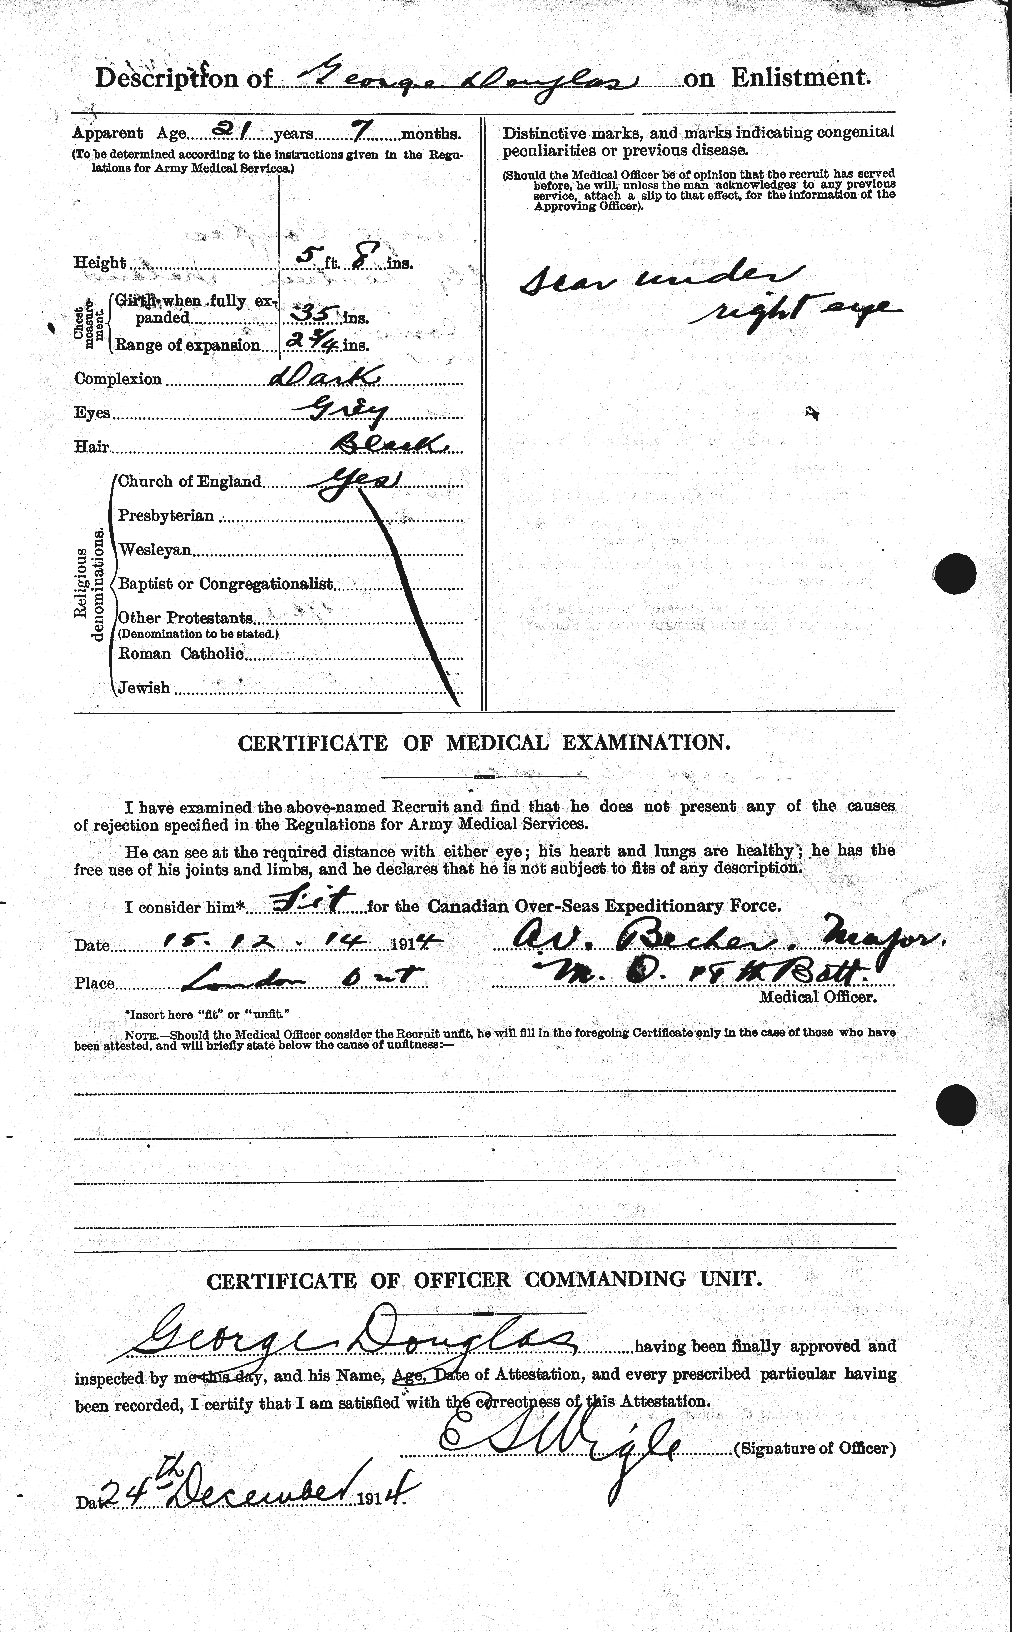 Description of George Douglas on Enlistment.
Apparent Age 21 years 7 months.
(To be determined according to the instructions given in the Regu-
lations for Army Medical Services.)
Height 5 ft. 8 ins.
Chest measure-ment.
Girth when fully ex-
panded 35 ins.
Range of expansion 2 3/4 ins.
Complexion Dark
Eyes Grey
Hair Black
Religious denominations.
Church of England Yes
Presbyterian
Wesleyan
Baptist or Congregationalist
Other Protestants
(Denomination to be stated.)
Roman Catholic
Jewish
Distinctive marks, and marks indicating congenital
peculiarities or previous disease.
(Should the Medical Officer be of opinion that the recruit has served
before, he will, unless the man acknowledges to any previous
service, attach a slip to that effect, for the information of the
Approving Officer).
Scar under
right eye
CERTIFICATE OF MEDICAL EXAMINATION.
I have examined the above-named Recruit and find that he does not present any of the causes
of rejection specified in the Regulations for Army Medical Services.
He can see at the required distance with either eye; his heart and lungs are healthy; he has the
free use of his joints and limbs, and he declares that he is not subject to fits of any description.
I consider him* Fit for the Canadian Over-Seas Expeditionary Force.
Date 15. 12. 14 1914 Becher. Major.
Place London Ont M. O. 18th Batt.
Medical Officer.
*Insert here "fit" or "unfit."
NOTE.—Should the Medical Officer consider the Recruit unfit, he will fill in the foregoing Certificate only in the case of those who have
been attested, and will briefly state below the cause of unfitness:—
CERTIFICATE OF OFFICER COMMANDING UNIT.
George Douglas having been finally approved and
inspected by me this day, and his Name, Age, Date of Attestation, and every prescribed particular having
been recorded, I certify that I am satisfied with the correctness of this Attestation.
E S Wigle (Signature of Officer)
Date 24th December 1914.